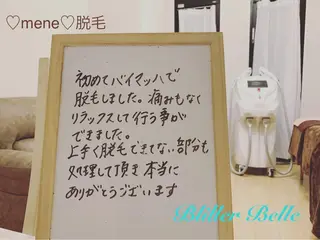 ♡mene♡脱毛
初めてバイマッハで
脱毛しました。痛みもなく
リラックスして行う事が
できました。
上手く脱毛できてない部分も
処理して頂き本当に
ありがとうございます
Bkller Belle